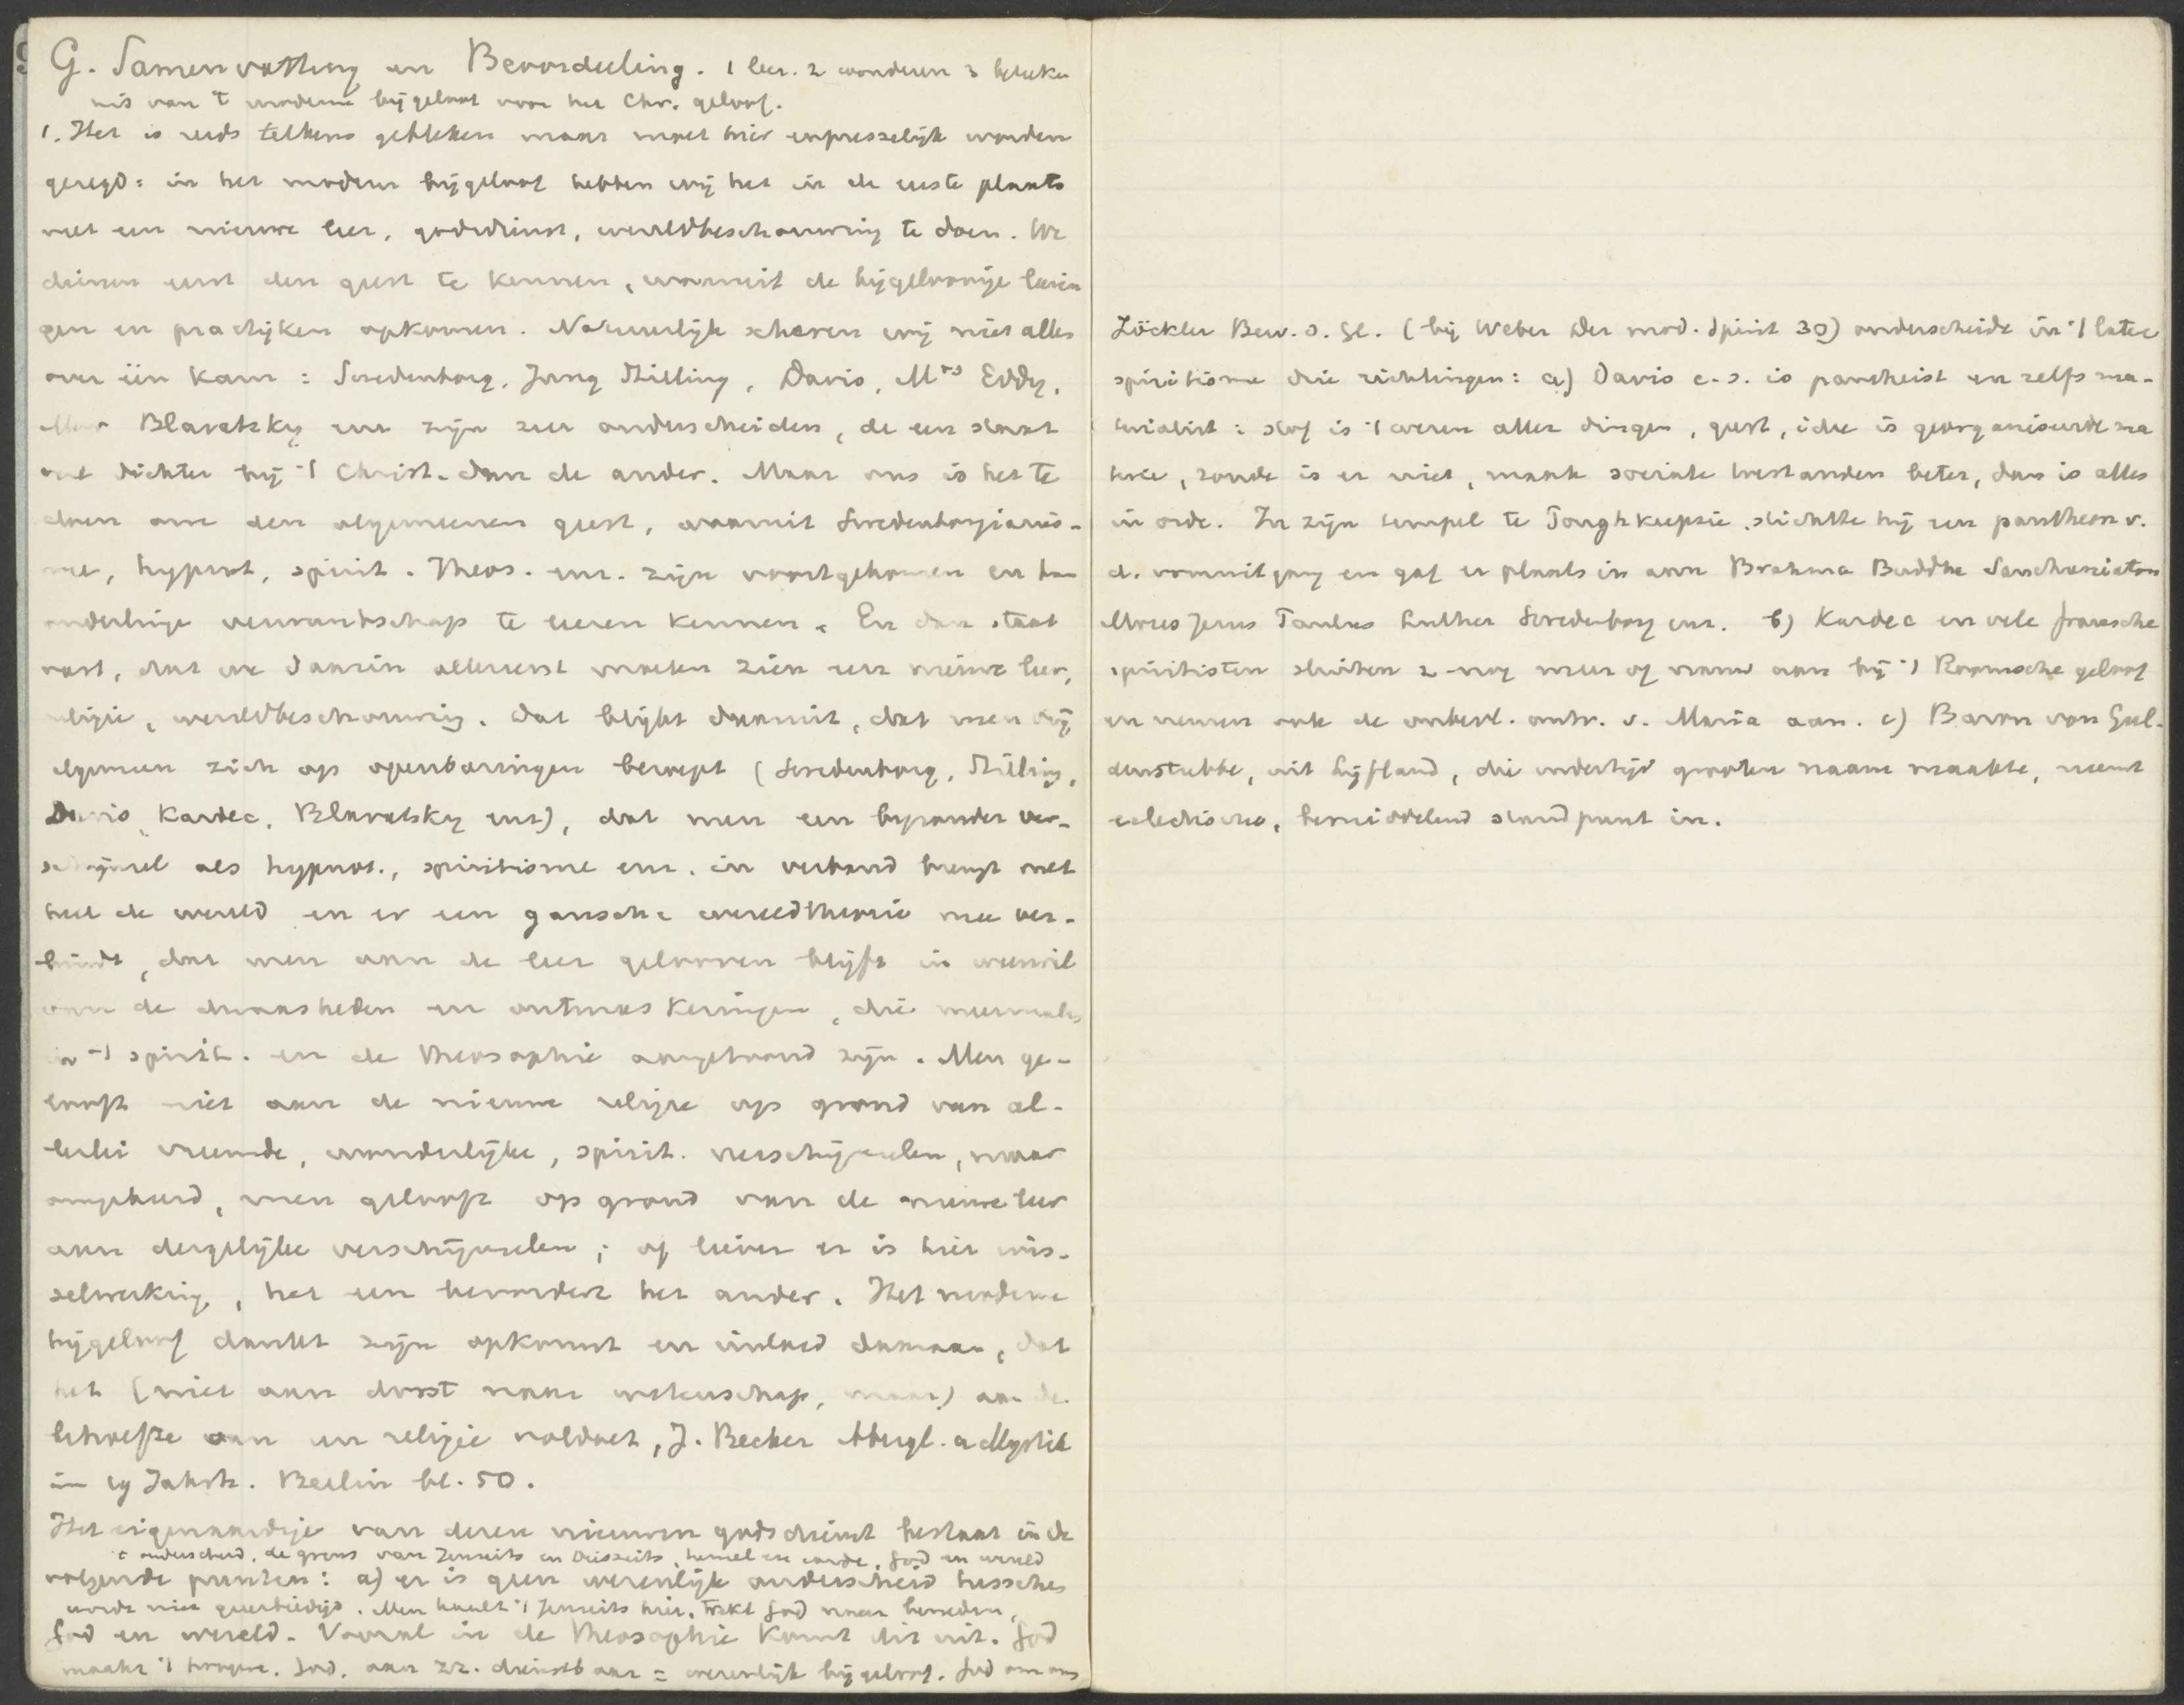 G. Samenvatting en Beoordeeling. 1 leer. 2 wonderen 3 beteke
nis van 't moderne bijgeloof voor het Chr. geloof.
1. Het is reeds telkens gebleken maar moet hier expresselijk worden
gezegd: in het modern bijgeloof hebben wij het in de eerste plaats
met een nieuwe leer, godsdienst, wereldbeschouwing te doen. We
dienen eerst den geest te kennen, waaruit de bijgeloovige leerin
gen en practijken opkomen. Natuurlijk scheren wij niet alles
over één kam: Swedenborg, Jung Stilling, Davis, Mrs Eddy,
Mev Blavatsky enz zijn zeer onderscheiden, de een staat
veel dichter bij 't Christ. dan de ander. Maar ons is het te
doen om den algemeenen geest, waaruit Swedenborgianis-
me, hypnot, spirit. Theos. enz. zijn voortgekomen en hun
onderlinge verwantschap te leeren kennen. En dan staat
vast, dat we daarin allereerst moeten zien een nieuwe leer,
religie, wereldbeschouwing. Dat blijkt daaruit, dat men bij
algemeen zich op openbaringen beroept (Swedenborg, Stilling,
Davis, Kardec, Blavatsky enz), dat men een bijzonder ver-
schijnsel als hypnot., spiritisme enz. in verband brengt met
heel de wereld en er een gansche wereldtheorie mee ver-
bindt, dat men aan de leer gelooven blijft in weerwil
van de dwaasheden en ontmaskeringen, die meermalen
in 't spirit. en de theosophie aangetoond zijn. Men ge-
looft niet aan de nieuwe religie op grond van al-
lerlei vreemde, wonderlijke, spirit. verschijnselen, maar
omgekeerd, men gelooft op grond van de nieuwe leer
aan dergelijke verschijnselen; of liever er is hier wis-
selwerking, het een bevordert het ander. Het moderne
bijgeloof dankt zijn opkomst en invloed daaraan, dat
het (niet aan dorst naar wetenschap, maar) aan de
behoefte aan een religie voldoet, J. Becker Abergl. u Mystik
im 19 Jahrh. Berlin bl. 50.
Het eigenaardige van dezen nieuwen godsdienst bestaat in de
't onderscheid, de grens van Jenseits en Diesseits, hemel en aarde, God en wereld
volgende punten: a) er is geen wezenlijk onderscheid tusschen
wordt niet geeerbiedigd. Men haalt 't Jenseits hier, trekt God naar beneden,
God en wereld. Vooral in de theosophie komt dit uit. God
maakt 't hoogste, God, aan zz. dienstbaar = wezenlijk bijgeloof. God om ons
Zöckler Bew. d. Gl. (bij Weber Der mod. Spirit 30) onderscheidt in 't latere
spiritisme drie richtingen: a) Davis c.s. is pantheist en zelfs ma-
terialist: stof is 't wezen aller dingen, geest, idee is georganiseerde ma
terie, zonde is er niet, maak sociale toestanden beter, dan is alles
in orde. In zijn tempel te Poughkeepsie stichtte hij een pantheon v.
d. vooruitgang en gaf er plaats in aan Brahma Buddha Sanchuniaton
Mozes Jezus Paulus Luther Swedenborg enz. b) Kardec en vele fransche
spiritisten sluiten z nog meer of nauw aan bij 't Roomsche geloof
en nemen ook de onbevl. ontv. v. Maria aan. c) Baron von Gul-
denstubbe, uit Lijfland, die indertijd grooten naam maakte, neemt
eclectische, bemiddelend standpunt in.